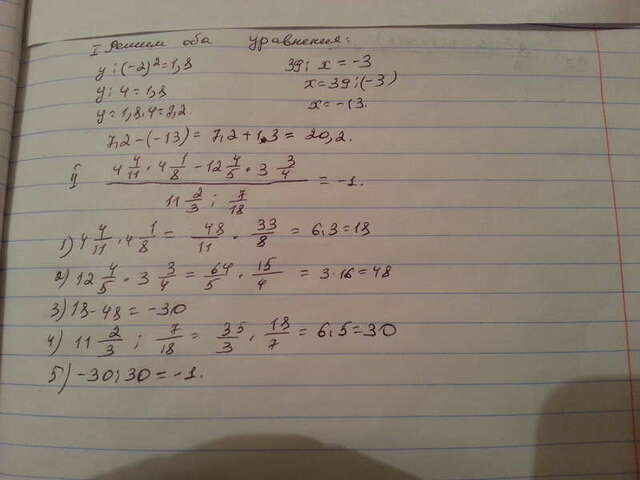 I Решим оба уравнения:
y : (-2)² = 1,8 39 : x = -3
y : 4 = 1,8 x = 39 : (-3)
y = 1,8 · 4 = 7,2 x = -13.
7,2 - (-13) = 7,2 + 13 = 20,2.
II (4 4/11 · 4 1/8 - 12 4/5 · 3 3/4) / (11 2/3 : 7/18) = -1.
1) 4 4/11 · 4 1/8 = 48/11 · 33/8 = 6 · 3 = 18
2) 12 4/5 · 3 3/4 = 64/5 · 15/4 = 3 · 16 = 48
3) 18 - 48 = -30
4) 11 2/3 : 7/18 = 35/3 · 18/7 = 6 · 5 = 30
5) -30 : 30 = -1.